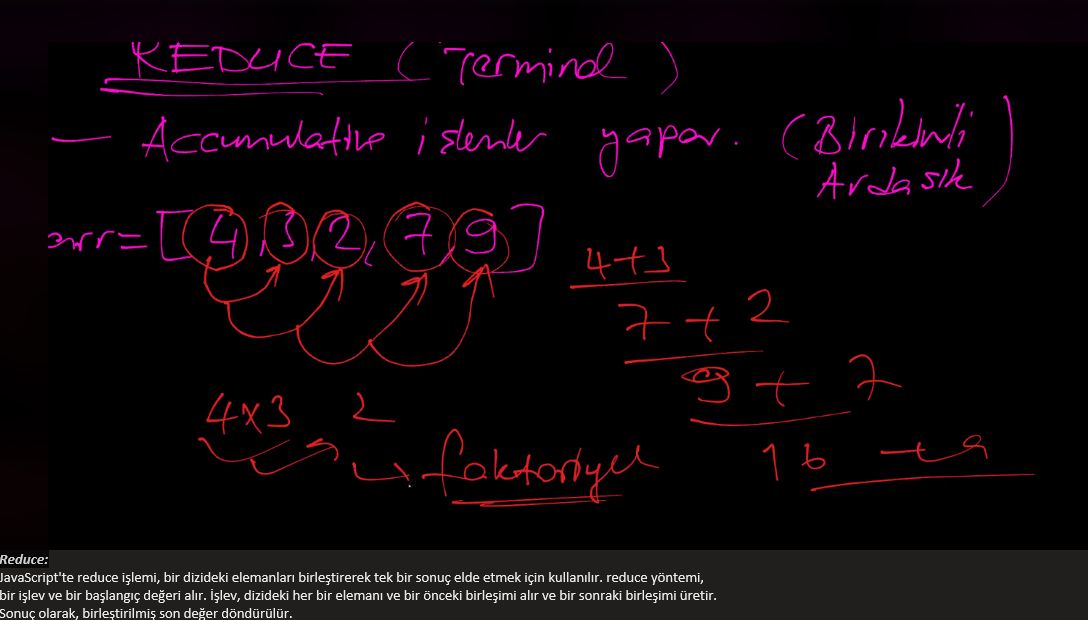 REDUCE (Terminal)
— Accumulative işlemler yapar. (Birikimli
Ardaşık)
arr=[4,3,2,7,9]
4+3
7+2
9+7
16+9
4x3 2
faktoriyel
Reduce:
JavaScript'te reduce işlemi, bir dizideki elemanları birleştirerek tek bir sonuç elde etmek için kullanılır. reduce yöntemi,
bir işlev ve bir başlangıç değeri alır. İşlev, dizideki her bir elemanı ve bir önceki birleşimi alır ve bir sonraki birleşimi üretir.
Sonuç olarak, birleştirilmiş son değer döndürülür.